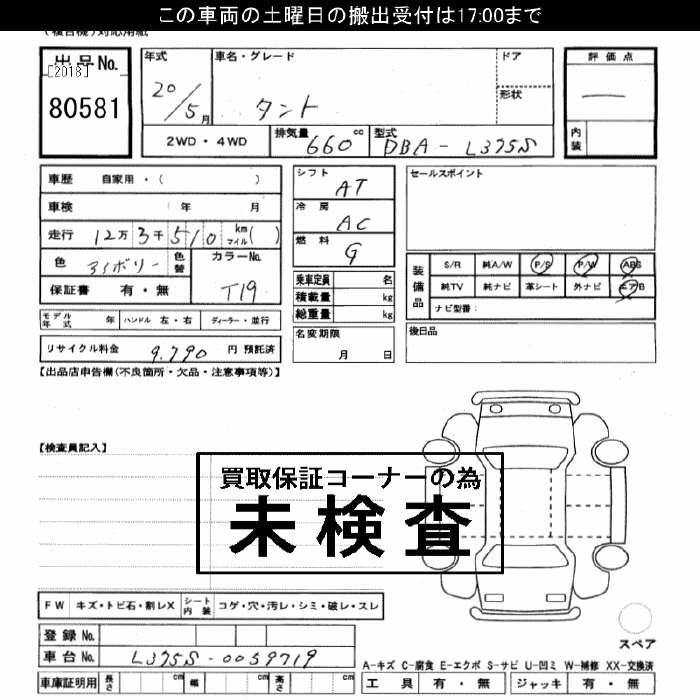 この車両の土曜日の搬出受付は17:00まで
(複合機)対応用紙
出品No.
[2018]
80581
年式
20/5月
車名・グレード
タント
ドア
形状
評価点
—
内装
2WD・4WD
排気量
660cc
型式
DBA-L375S
車歴 自家用・( )
車検 年 月
走行 12万3千510 km マイル( )
色
アイボリー
色替
カラーNo.
T19
保証書 有・無
シフト
AT
冷房
AC
燃料
G
乗車定員 名
積載量 kg
総重量 kg
名変期限
月 日
セールスポイント
装備品
S/R 純A/W P/S P/W ABS
純TV 純ナビ 革シート 外ナビ エアB
ナビ型番:
後日品
モデル年式 年 ハンドル 左・右 ディーラー・並行
リサイクル料金 9,790 円 預託済
【出品店申告欄(不良箇所・欠品・注意事項等)】
【検査員記入】
買取保証コーナーの為
未検査
FW キズ・トビ石・割レX シート内装 コゲ・穴・汚レ・シミ・破レ・スレ
登録No.
車台No. L375S-0059719
車庫証明用 長さ cm 幅 cm 高さ cm
スペア
A-キズ C-腐食 E-エクボ S-サビ U-凹ミ W-補修 XX-交換済
工具 有・無 ジャッキ 有・無